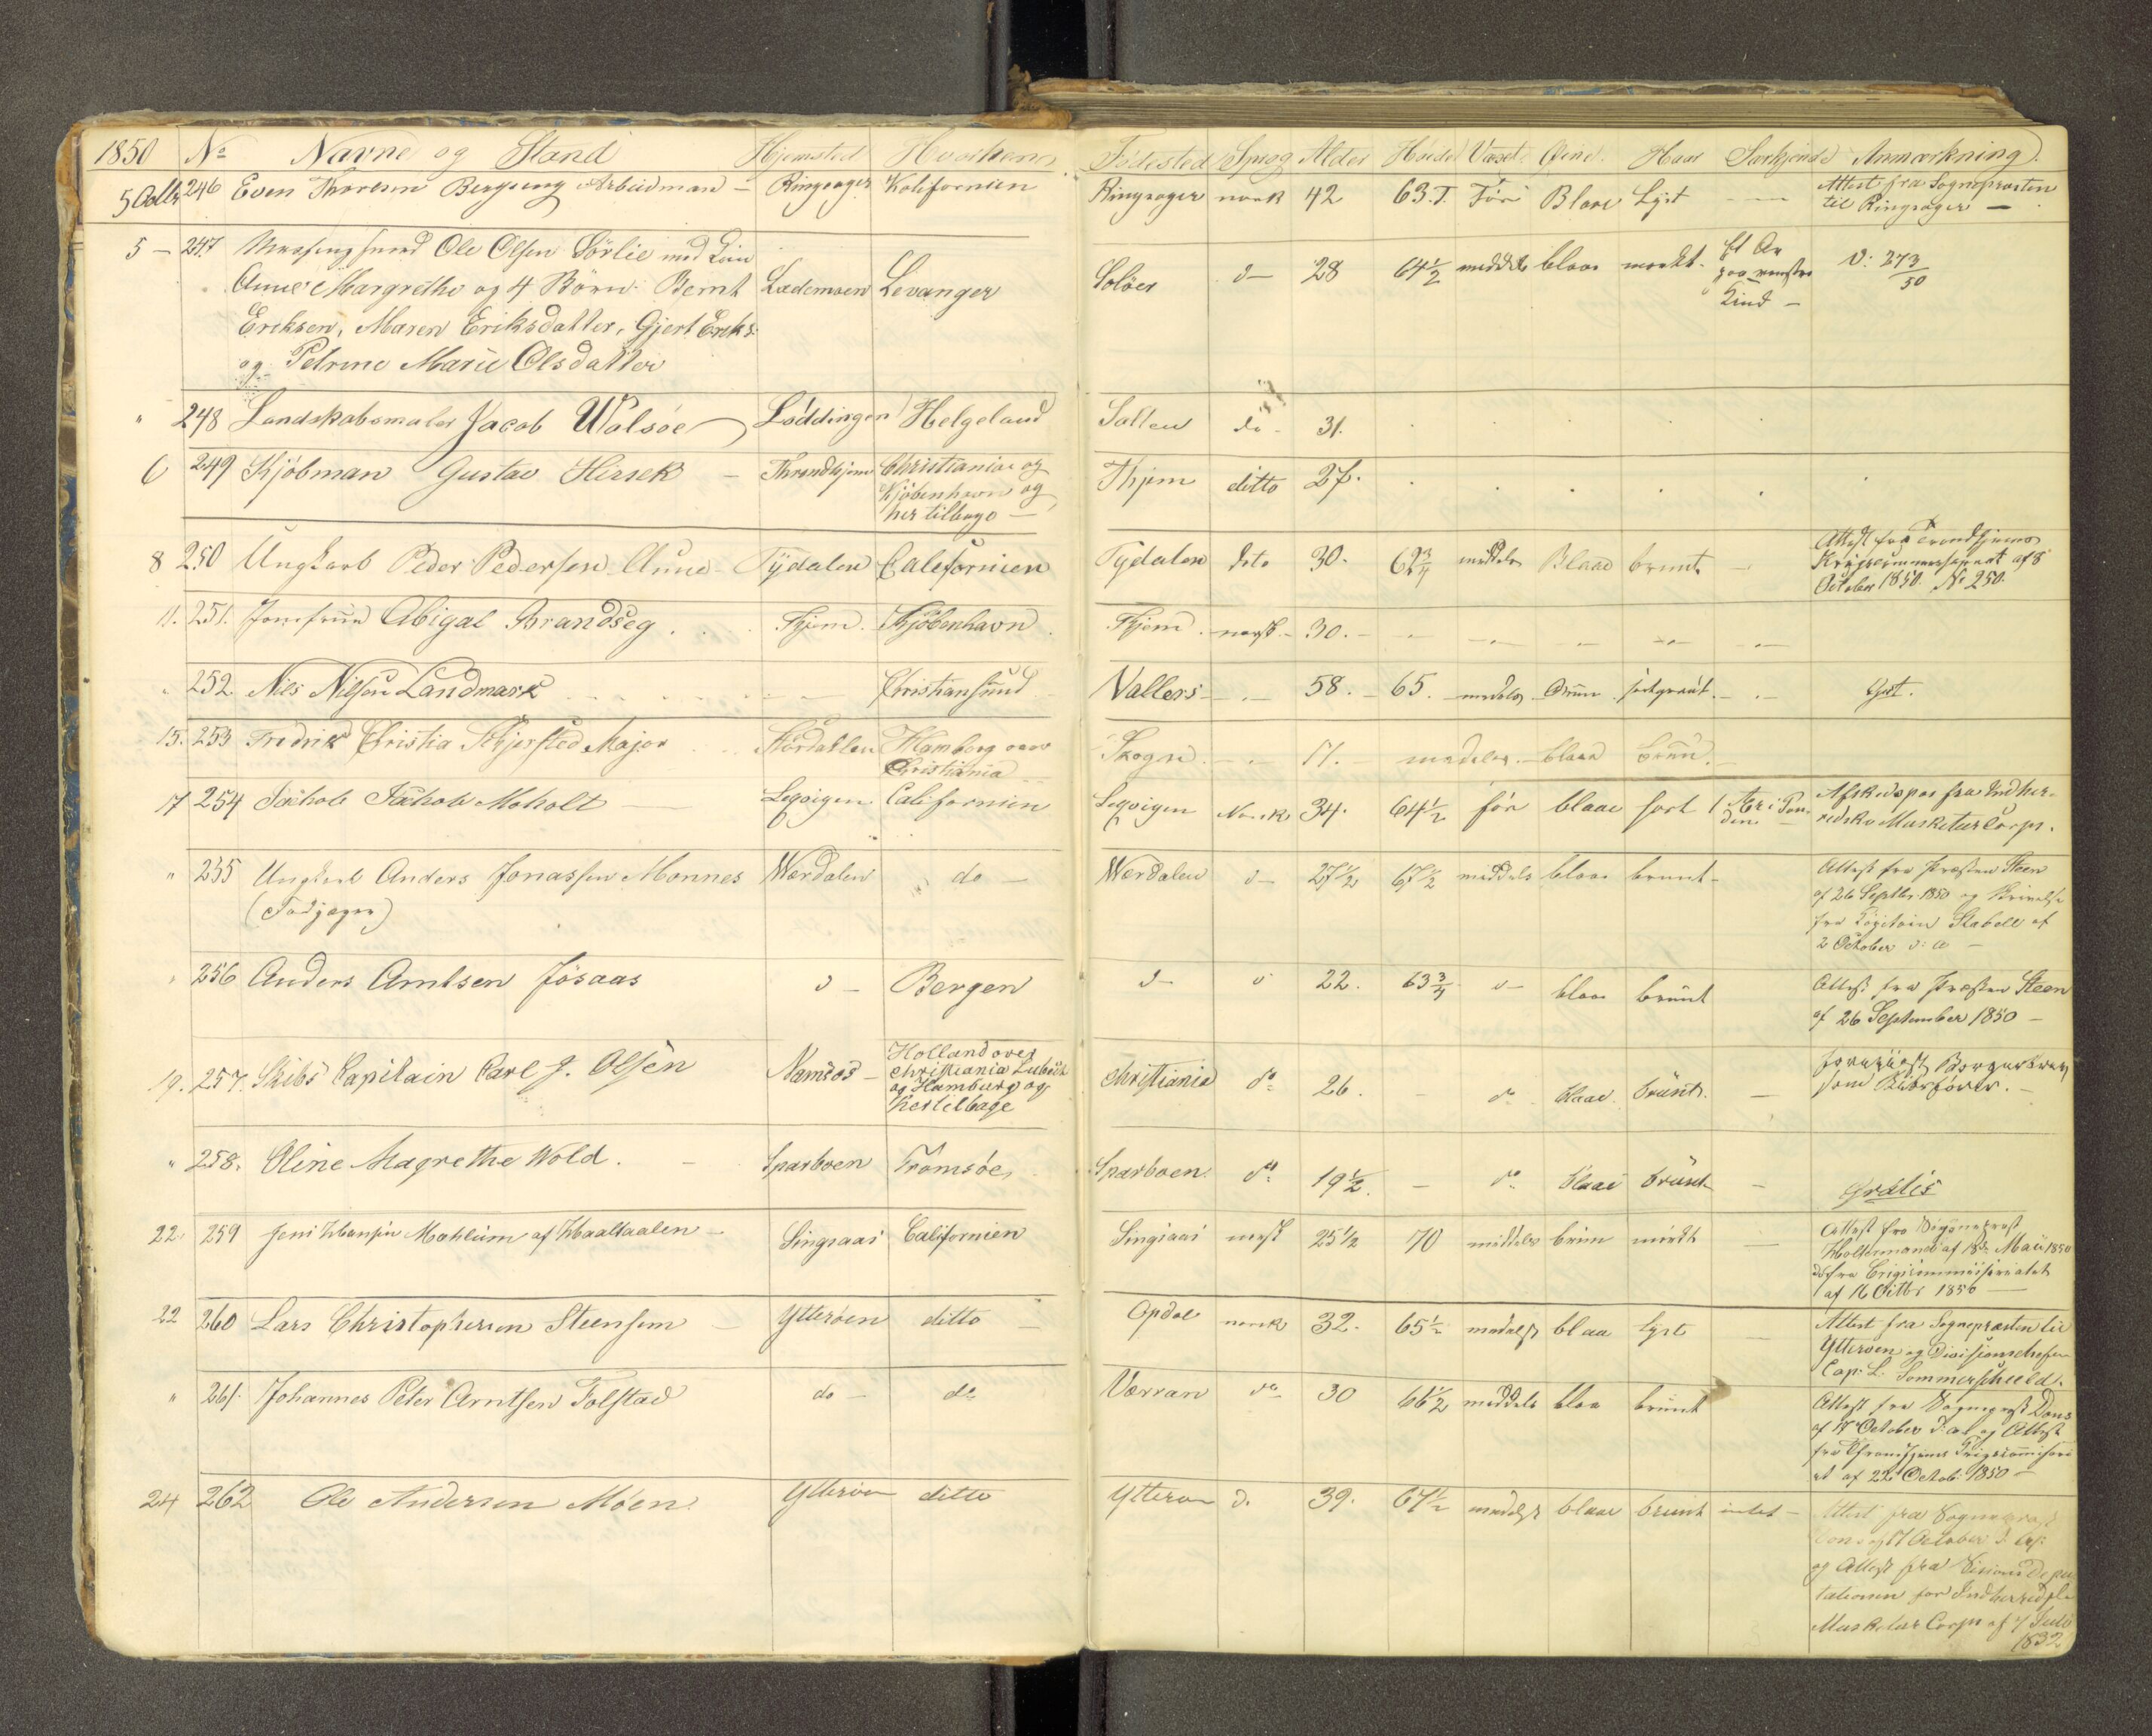 1850 No Navne og Stand Hjemsted Hvorhen Fødested Sprog Alder Høide Væxt Øine Haar Særkjende Anmærkning.
5 Octbr 246 Even Thoresen Bergseng Arbeidsmand — Ringsager Kalifornien Ringsager norsk 42 63. T. Før Blaae Lyst — Attest fra Sognepræsten
til Ringsager —
5 — 247. Ole Olsen Sörlie med
Anne Margrethe og 4 Börn Bernt Lademoen Levanger Solöer d— 28 64½ middels blaae mørkt. et Ar
paa venstre
Kind — V: 273/50
Eriksen, Maren Eriksdatter, Gjert Eriks:
og Petrine Marie Olsdatter
" 248 Landskabsmaler Jacob Walsöe Löddingen Helgeland Salten do - 31.
6 249 Kjöbman Gustav Hirsek — Throndhjem Christiania og
Kjöbenhavn og
her tilbage — Thjem ditto 27.
8 250 Ungkarl Peder Pedersen Aune — Tydalen Californien Tydalen dito 30. 62¾ middels Blaae brunt — Attest fra Trondhjems
Krigscommissariat af 8
October 1850. No 250.
11. 251. Jomfrue Abigal Brandseg . . . Thjem. Kjöbenhavn. Thjem. norsk. — 30. —
" 252 Nils Nilsen Landmark Christiansund Vallers — 58. — 65. — medels brune — Grt.
15. 253 Fredrik Christia Major Stördahlen Hamborg over
Christiania Skogn. — 17. — medels. — blaae brun.
17 254 Jachob Jachobs Moholt — Leqvigen Californien Leqvigen Norsk 34. 64½ för blaae sort 1 Ar i Pan-
den — Afskedspas fra Indher-
redske Musketeer Corps.
" 255 Ungkarl Anders Jonassen Monnes Werdalen do — Werdalen d— 27½ 67½ middels blaae brunt — Attest fra Præsten Steen
af 26 Septbr 1850 og Skrivelse
fra Capitain Stabell af
2 October d: a —
" 256 Anders Arntsen Jösaas d — Bergen d— d 22. 63¾ d— blaae brunt Attest fra Præsten Steen
af 26 September 1850 —
19. 257. Skibs Capitain Carl J. Olsen Namsos — Holland over
Christiania Lubeck
og Hamburg og
her tilbage Christiania do 26. — do blaae brunt. — Borgerbrev
som Skibsfører. —
" 258. Oline Magrethe Wold. — Sparboen Tromsöe, Sparboen. do 19½. — do blaae brunt — Gratis
22. 259 Jens Hansen Mahlum af Haaltaalen — Singsaas Californien Singsaas norsk 25½ 70 middels brun mörkt — Attest fra Sogneprest
Holtermand af 18de Mai 1850
do fra Crigscommissariatet
af 16 Octbr 1850 —
22 260 Lars Christophersen Steensem — Ytteröen ditto — Opdal norsk 32. 65½ medels blaa lyst — Attest fra Sogneprästen til
Ytteröen og Divisionschefen
Cap: L. Sommerschield.
" 261. Johannes Peter Arntsen Folstad do — do Værran do 30 66½ middels blaa brunt Attest fra Sogneprest Dons
af 17 October d: a: og Attest
fra Throndhjems Krigscommissari
at af 22de Octob: 1850 —
24 262 Ole Andersen Möen. Ytteröen ditto Ytteröen d. 39. 67½ medels blaae brunt intet — Attest fra Sogneprest
Dons af 17 October d: A:
og Attest fra Sessions Depu
tationen for Indherredske
Musketeer Corps af 4 Juli
1832